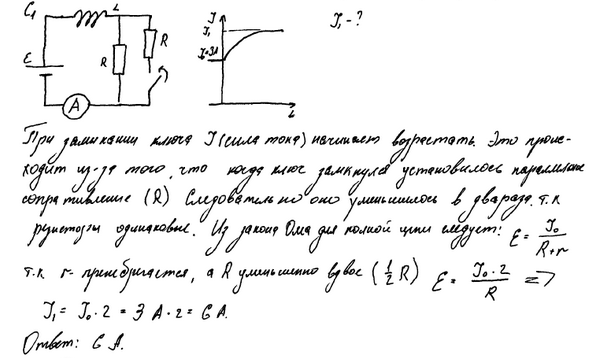 C₁ L J J₁-?
R R J₁
ε J₀=3А
A t
При замыкании ключа J (сила тока) начинает возрастать. Это проис-
ходит из-за того, что когда ключ замкнулся установилось параллельное
сопративление (R) Следовательно оно уменьшилось в два раза, т.к
ризисторы одинаковые. Из закона Ома для полной цепи следует: ε = J₀/R+r
т.к r- пренебрегается, а R уменьшено вдвое (1/2 R) ε = J₀·2/R =>
J₁ = J₀·2 = 3 А·2 = 6 А.
Ответ: 6 А.